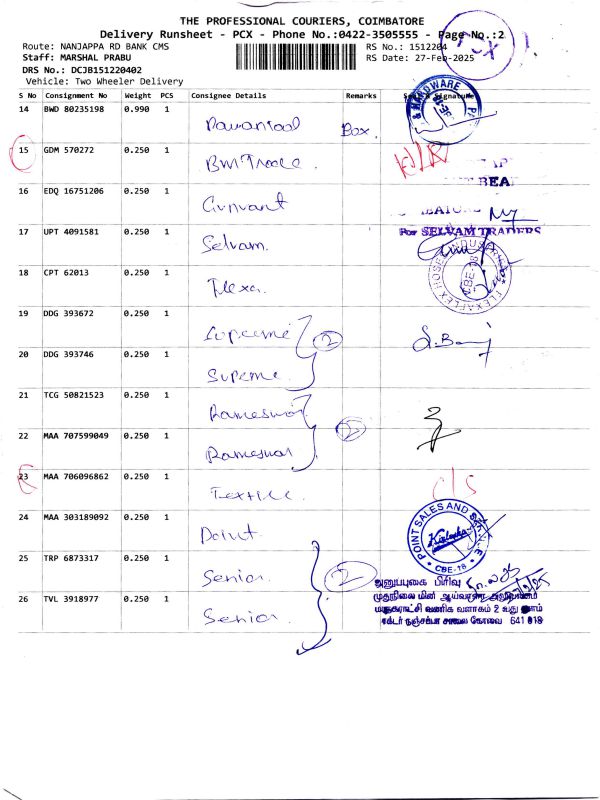 THE PROFESSIONAL COURIERS, COIMBATORE
Delivery Runsheet - PCX - Phone No.:0422-3505555 - Page No.:2
PCX
Route: NANJAPPA RD BANK CMS
RS No.: 1512204
Staff: MARSHAL PRABU
RS Date: 27-Feb-2025
DRS No.: DCJB151220402
Vehicle: Two Wheeler Delivery
S No Consignment No Weight PCS Consignee Details Remarks Signature
14 BWD 80235198 0.990 1 Box
& HARDWARE
15 GDM 570272 0.250 1
BEA
16 EDQ 16751206 0.250 1
17 UPT 4091581 0.250 1 Selvam
For SELVAM TRADERS
18 CPT 62013 0.250 1 Flexa
19 DDG 393672 0.250 1 Supreme
2
20 DDG 393746 0.250 1 Supreme
21 TCG 50821523 0.250 1 Rameswar
2
22 MAA 707599049 0.250 1 Rameswar
23 MAA 706096862 0.250 1 Textile
24 MAA 303189092 0.250 1 Point
POINT SALES AND
CBE-18
25 TRP 6873317 0.250 1 Senior
2
அனுப்புகை பிரிவு
26 TVL 3918977 0.250 1 Senior
முதுநிலை மின் ஆய்வாளர்
வணிக வளாகம் 2 வது தளம்
சாலை கோவை 641 018